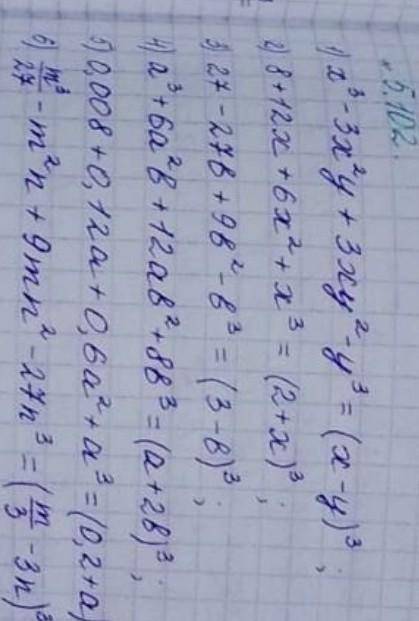 5.102.
1) x³ - 3x²y + 3xy² - y³ = (x - y)³;
2) 8 + 12x + 6x² + x³ = (2 + x)³;
3) 27 - 27в + 9в² - в³ = (3 - в)³;
4) a³ + 6a²в + 12aв² + 8в³ = (a + 2в)³;
5) 0,008 + 0,12a + 0,6a² + a³ = (0,2 + a)
6) m³/27 - m²n + 9mn² - 27n³ = (m/3 - 3n)³